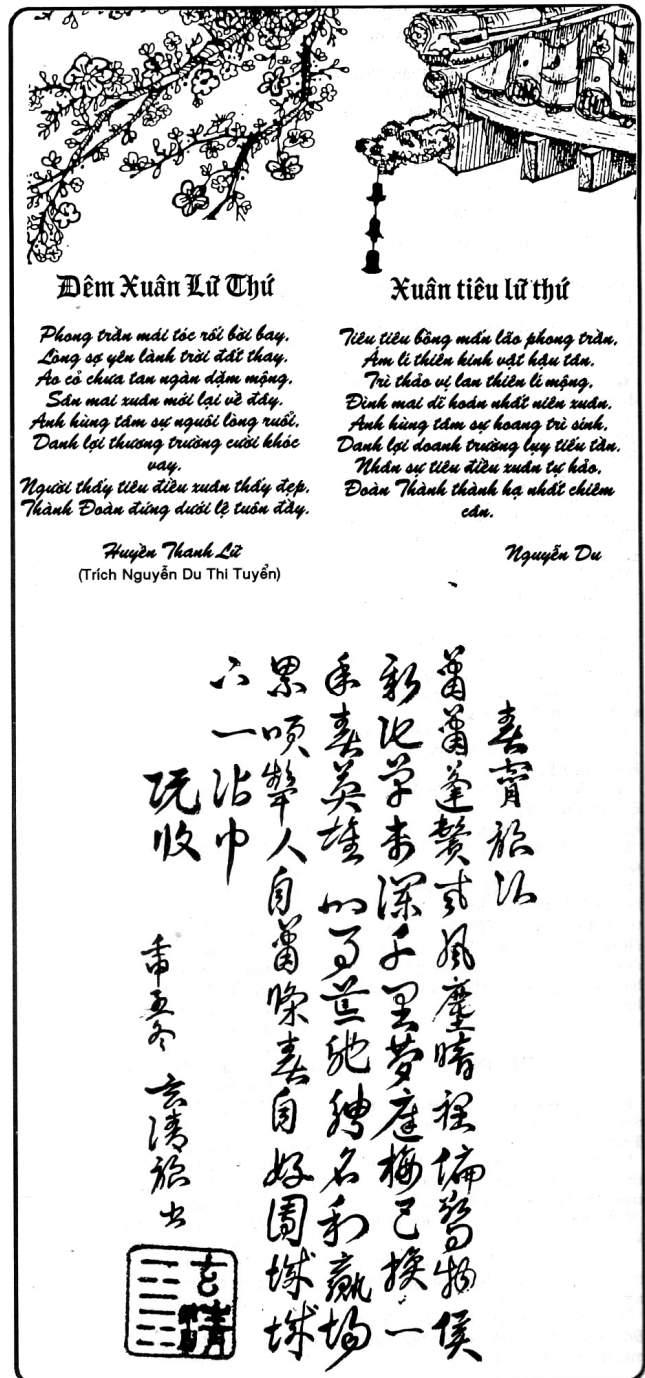 Đêm Xuân Lữ Thứ
Phong trần mái tóc rối bời bay,
Lòng sợ yên lành trời đất thay.
Ao cỏ chưa tan ngàn dặm mộng,
Sân mai xuân mới lại về đây.
Anh hùng tâm sự nguôi lòng ruổi,
Danh lợi thương trường cười khóc
vay.
Người thấy tiêu điều xuân thấy đẹp,
Thành Đoàn đứng dưới lệ tuôn đầy.
Huyền Thanh Lữ
(Trích Nguyễn Du Thi Tuyển)
Xuân tiêu lữ thứ
Tiêu tiêu bồng mấn lão phong trần,
Ám lí thiên kinh vật hậu tân.
Trì thảo vị lan thiên lí mộng,
Đình mai dĩ hoán nhất niên xuân.
Anh hùng tâm sự hoang trì sính,
Danh lợi doanh trường lụy tiếu tần.
Nhân sự tiêu điều xuân tự hảo,
Đoàn Thành thành hạ nhất chiêm
cân.
Nguyễn Du
春宵旅次
蕭蕭蓬鬢老風塵暗裡偏驚物候
新池草未千里夢庭梅已換一
年春英雄心事荒馳騁名利嬴場
累笑顰人自蕭條春自好團城城
下一沾巾
阮攸
冬 玄清旅書
玄清